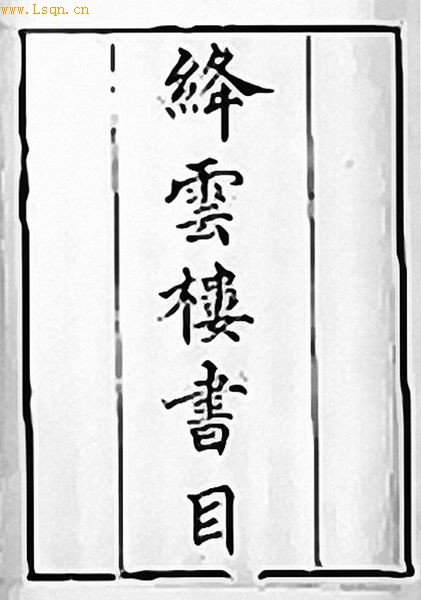 www.Lsqn.cn
絳雲樓書目